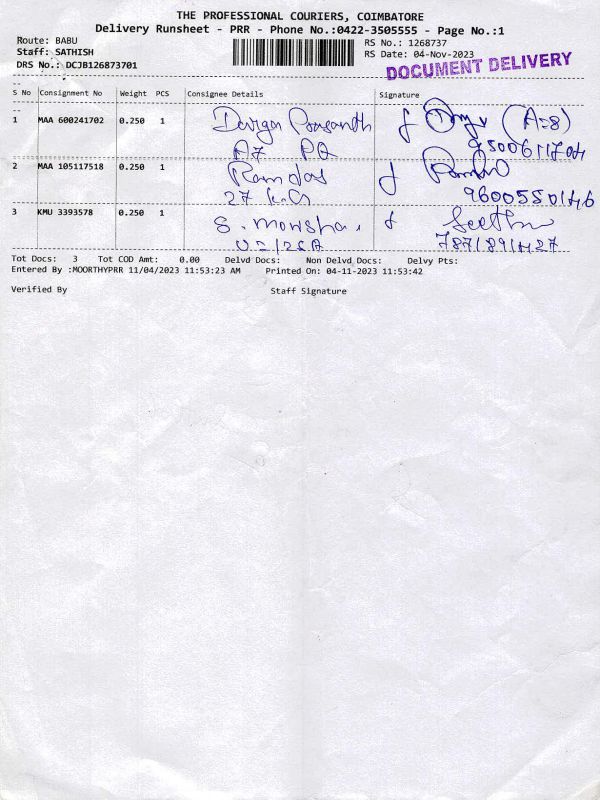 THE PROFESSIONAL COURIERS, COIMBATORE
Delivery Runsheet - PRR - Phone No.:0422-3505555 - Page No.:1
Route: BABU
Staff: SATHISH
DRS No.: DCJB126873701
RS No.: 1268737
RS Date: 04-Nov-2023
DOCUMENT DELIVERY
S No Consignment No Weight PCS Consignee Details Signature
1 MAA 600241702 0.250 1 Durga Prasanth (A=8)
A7 PQ 9500611704
2 MAA 105117518 0.250 1 Ramdas
27 9600550146
3 KMU 3393578 0.250 1 S. Seetha
U=126A 7871891427
Tot Docs: 3 Tot COD Amt: 0.00 Delvd Docs: Non Delvd Docs: Delvy Pts:
Entered By :MOORTHYPRR 11/04/2023 11:53:23 AM Printed On: 04-11-2023 11:53:42
Verified By Staff Signature